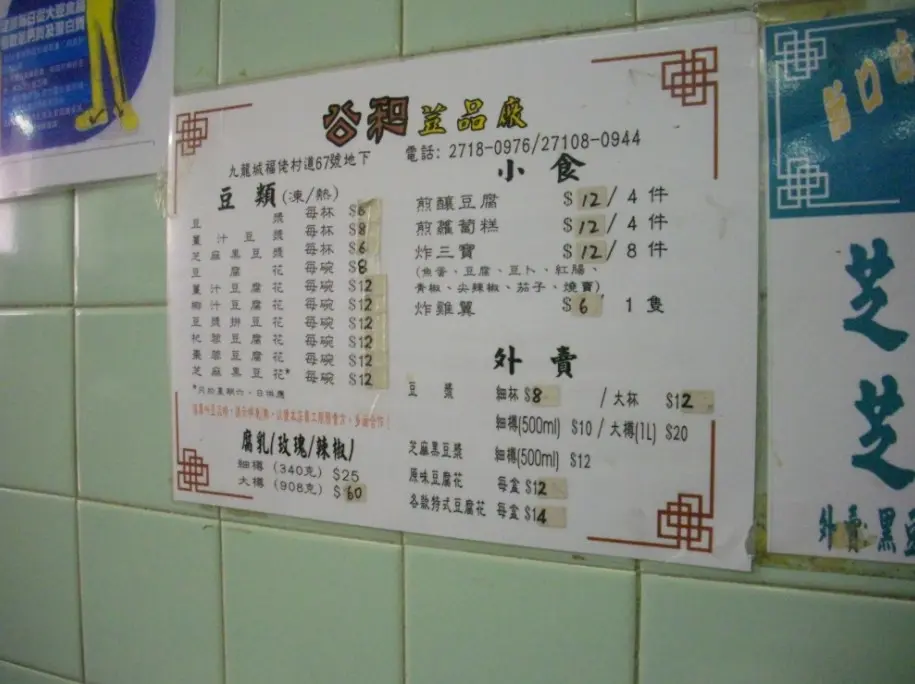 公和荳品廠
九龍城福佬村道67號地下
電話: 2718-0976/27108-0944
豆類(凍/熱)
豆漿 每杯 $6
薑汁豆漿 每杯 $8
芝麻黑豆漿 每杯 $6
豆腐花 每碗 $8
薑汁豆腐花 每碗 $12
椰汁豆腐花 每碗 $12
豆漿拼豆花 每碗 $12
杞蓉豆腐花 每碗 $12
棗蓉豆腐花 每碗 $12
芝麻黑豆花* 每碗 $12
*只於星期六、日供應
腐乳(玫瑰/辣椒)
細樽 (340克) $25
大樽 (908克) $60
小食
煎釀豆腐 $12/4件
煎蘿蔔糕 $12/4件
炸三寶 $12/8件
(魚蛋、豆腐、豆卜、紅腸、
青椒、尖辣椒、茄子、燒賣)
炸雞翼 $6 1隻
外賣
豆漿 細杯 $8 /大杯 $12
細樽(500ml) $10 / 大樽(1L) $20
芝麻黑豆漿 細樽(500ml) $12
原味豆腐花 每盒 $12
各款特式豆腐花 每盒 $14
芝
芝
外賣:黑